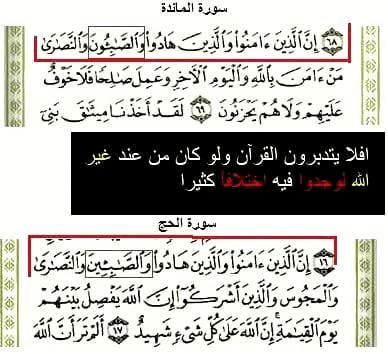 سورة المائدة
٦٨ إِنَّ الَّذِينَ ءَامَنُوا وَالَّذِينَ هَادُوا وَالصَّٰبِـُٔونَ وَالنَّصَٰرَىٰ
مَنْ ءَامَنَ بِاللَّهِ وَالْيَوْمِ الْأَخِرِ وَعَمِلَ صَٰلِحًا فَلَا خَوْفٌ
عَلَيْهِمْ وَلَا هُمْ يَحْزَنُونَ ٦٩ لَقَدْ أَخَذْنَا مِيثَٰقَ بَنِىٓ
افلا يتدبرون القرآن ولو كان من عند غير
الله لوجدوا فيه اختلافا كثيرا
سورة الحج
١٦ إِنَّ الَّذِينَ ءَامَنُوا وَالَّذِينَ هَادُوا وَالصَّٰبِـِٔينَ وَالنَّصَٰرَىٰ
وَالْمَجُوسَ وَالَّذِينَ أَشْرَكُوٓا إِنَّ اللَّهَ يَفْصِلُ بَيْنَهُمْ
يَوْمَ الْقِيَٰمَةِ إِنَّ اللَّهَ عَلَىٰ كُلِّ شَىْءٍ شَهِيدٌ ١٧ أَلَمْ تَرَ أَنَّ اللَّهَ